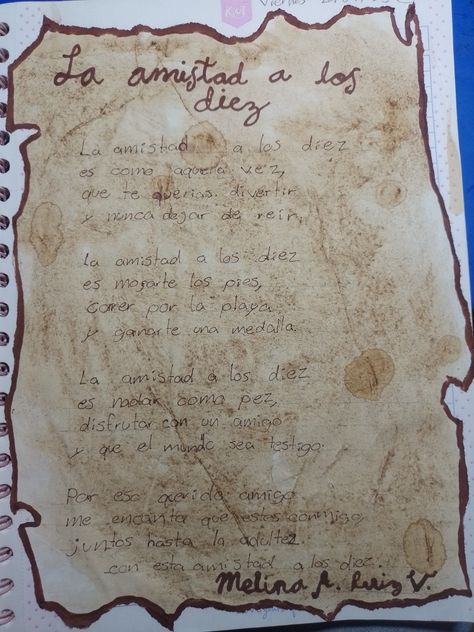 KiUT
Viernes
La amistad a los
diez
La amistad a los diez
es como aquella vez,
que te querias divertir
y nunca dejar de reir.
La amistad a los diez
es mojarte los pies,
correr por la playa
y ganarte una medalla.
La amistad a los diez
es nadar como pez,
disfrutar con un amigo
y que el mundo sea testigo.
Por eso querido amigo
me encanta que estes conmigo
juntos hasta la adultez
con esta amistad a los diez.
Melina A. Ruiz V.